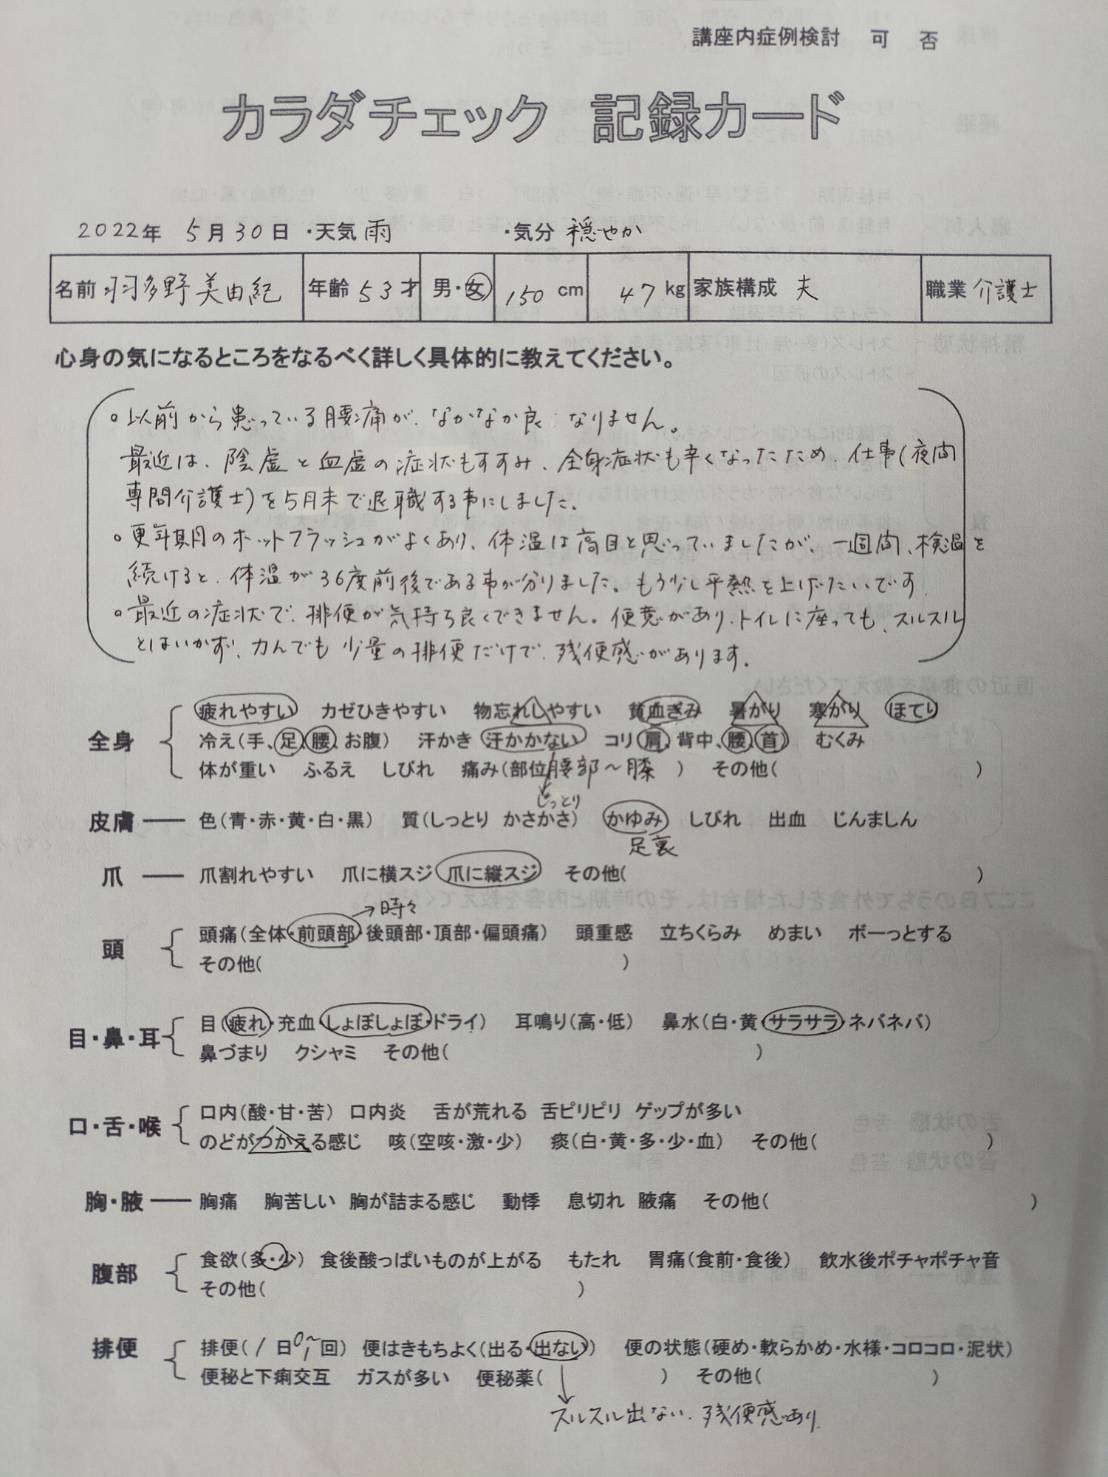 講座内症例検討 可 否
カラダチェック 記録カード
2022年 5月30日 ・天気 雨 ・気分 穏やか
名前 羽多野 美由紀 年齢 53才 男・女 150cm 47kg 家族構成 夫 職業 介護士
心身の気になるところをなるべく詳しく具体的に教えてください。
○以前から患っている腰痛が、なかなか良くなりません。
最近は、陰虚と血虚の症状もすすみ、全身症状も辛くなったため、仕事(夜間
専門介護士)を5月末で退職する事にしました。
○更年期のホットフラッシュがよくあり、体温は高目と思っていましたが、一週間、検温を
続けると、体温が36度前後である事が分りました。もう少し平熱を上げたいです
○最近の症状で、排便が気持ち良くできません。便意があり、トイレに座っても、スルスル
とはいかず、力んでも少量の排便だけで、残便感があります。
全身 疲れやすい カゼひきやすい 物忘れしやすい 貧血ぎみ 暑がり 寒がり ほてり
冷え(手、足、腰、お腹) 汗かき 汗かかない コリ(肩、背中、腰、首) むくみ
体が重い ふるえ しびれ 痛み(部位 腰部～膝 ) その他( )
じっとり
皮膚 色(青・赤・黄・白・黒) 質(しっとり かさかさ) かゆみ しびれ 出血 じんましん
足裏
爪 爪割れやすい 爪に横スジ 爪に縦スジ その他( )
→時々
頭 頭痛(全体・前頭部・後頭部・頂部・偏頭痛) 頭重感 立ちくらみ めまい ボーっとする
その他( )
目・鼻・耳 目(疲れ・充血・しょぼしょぼ・ドライ) 耳鳴り(高・低) 鼻水(白・黄・サラサラ・ネバネバ)
鼻づまり クシャミ その他( )
口・舌・喉 口内(酸・甘・苦) 口内炎 舌が荒れる 舌ピリピリ ゲップが多い
のどがつかえる感じ 咳(空咳・激・少) 痰(白・黄・多・少・血) その他( )
胸・腋 胸痛 胸苦しい 胸が詰まる感じ 動悸 息切れ 腋痛 その他( )
腹部 食欲(多・少) 食後酸っぱいものが上がる もたれ 胃痛(食前・食後) 飲水後ポチャポチャ音
その他( )
排便 排便(1日0～1回) 便はきもちよく(出る・出ない) 便の状態(硬め・軟らかめ・水様・コロコロ・泥状)
便秘と下痢交互 ガスが多い 便秘薬( ) その他( )
スルスル出ない、残便感あり